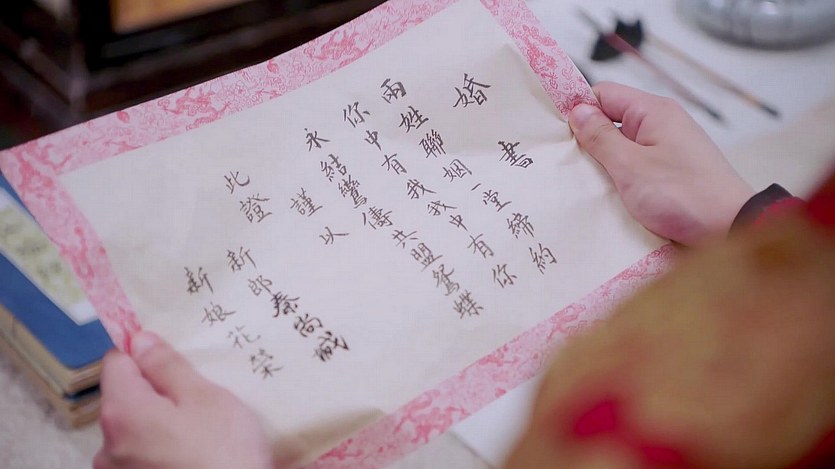 婚書
两姓聯姻一堂締約
你中有我我中有你
永結鸞儔共盟鴛蝶
謹以
此證
新郎秦尚城
新娘花榮